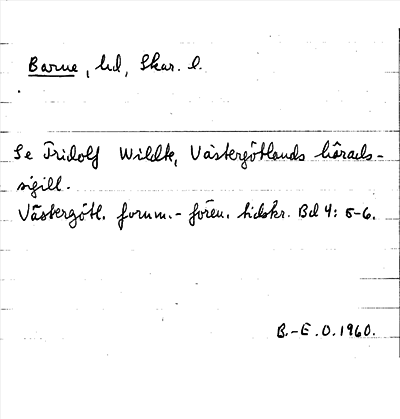 Barne, hd, Skar. l.
Se Fridolf Wildte, Västergötlands härads-
sigill.
Västergötl. fornm.- fören. tidskr. Bd 4: 5-6.
B.-E.O.1960.